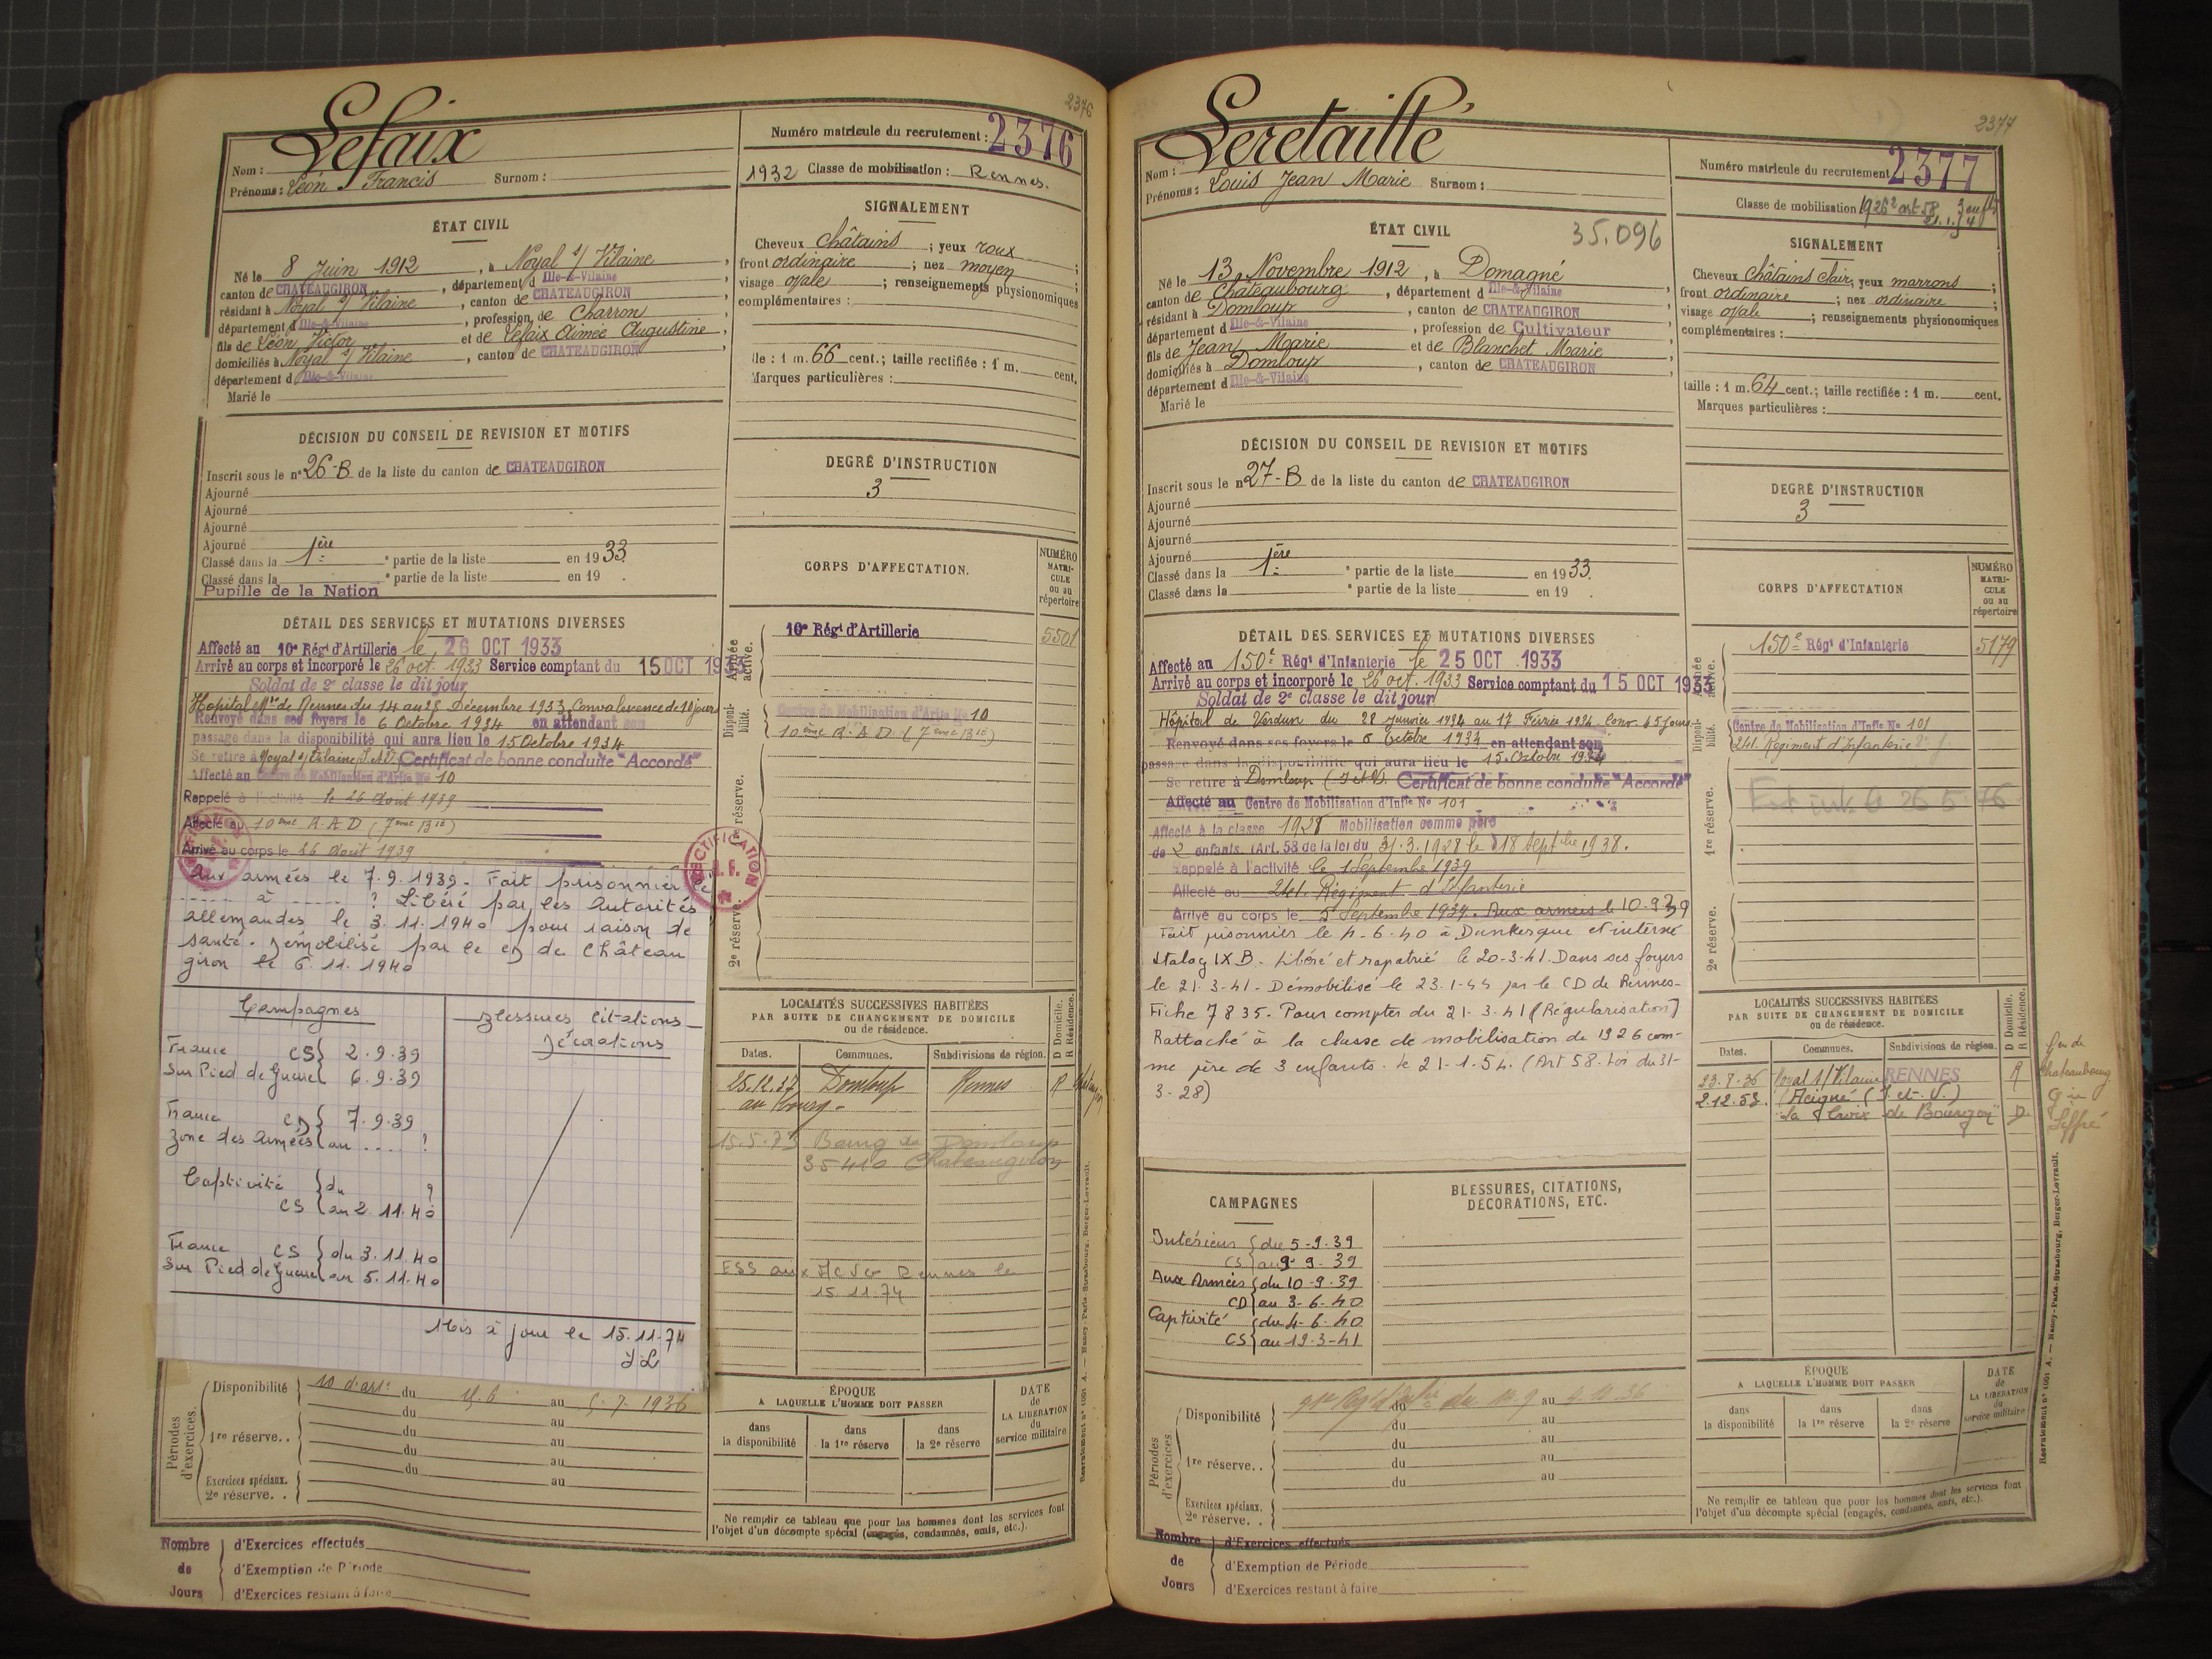 2376
Lefaix
Nom :
Prénoms : Léon Francis Surnom :
Numéro matricule du recrutement : 2376
1932 Classe de mobilisation : Rennes.
ÉTAT CIVIL
Né le 8 Juin 1912, à Noyal s/ Vilaine,
canton de CHATEAUGIRON, département d Ille-&-Vilaine
résidant à Noyal s/ Vilaine, canton de CHATEAUGIRON
département d Ille-&-Vilaine, profession de Charron
fils de Léon Victor et de Lefaix Aimée Augustine,
domiciliés à Noyal s/ Vilaine, canton de CHATEAUGIRON,
département d Ille-&-Vilaine
Marié le
SIGNALEMENT
Cheveux châtains ; yeux roux ;
front ordinaire ; nez moyen ;
visage ovale ; renseignements physionomiques
complémentaires :
lle : 1 m. 66 cent.; taille rectifiée : 1 m. cent.
Marques particulières :
DÉCISION DU CONSEIL DE REVISION ET MOTIFS
Inscrit sous le n° 26-B de la liste du canton de CHATEAUGIRON
Ajourné
Ajourné
Ajourné
Ajourné
Classé dans la 1ère partie de la liste en 1933.
Classé dans la e partie de la liste en 19 .
Pupille de la Nation
DEGRÉ D'INSTRUCTION
3
DÉTAIL DES SERVICES ET MUTATIONS DIVERSES
Affecté au 10e Régt d'Artillerie le 26 OCT 1933
Arrivé au corps et incorporé le 26 oct. 1933 Service comptant du 15 OCT 1933
Soldat de 2e classe le dit jour
Hopital Mre de Rennes du 14 au 28 Décembre 1933 Convalescence de 10 jours
Renvoyé dans ses foyers le 6 Octobre 1934 en attendant son
passage dans la disponibilité qui aura lieu le 15 Octobre 1934
Se retire à Noyal s/ Vilaine I. & V. Certificat de bonne conduite "Accordé"
Affecté au Centre de Mobilisation d'Artie No 10
Rappelé à l'activité le 26 Août 1939
Affecté au 10ème R.A.D (7ème Bie)
Arrivé au corps le 26 Août 1939
RECTIFICATION R.F.
Aux armées le 7.9.1939. Fait prisonnier le
...... à ...... ? Libéré par les Autorités
allemandes le 3.11.1940 pour raison de
santé. Démobilisé par le CD de Château
giron le 6.11.1940
Campagnes
Blessures Citations
Décorations
France CS 2.9.39
Sur Pied de Guerre 6.9.39
France CD 7.9.39
Zone des Armées au .... ?
Captivité du ?
CS au 2.11.40
France CS du 3.11.40
Sur Pied de Guerre au 5.11.40
Mis à jour le 15.11.74
CORPS D'AFFECTATION.
NUMÉRO MATRI- CULE ou au répertoire
Armée active.
10e Régt d'Artillerie 5501
Disponi- bilité.
Centre de Mobilisation d'Artie No 10
10ème R.A.D (7ème Bie)
1re réserve.
2e réserve.
LOCALITÉS SUCCESSIVES HABITÉES
PAR SUITE DE CHANGEMENT DE DOMICILE
ou de résidence.
D Domicile. R Résidence.
Dates. Communes. Subdivisions de région.
25.12.37 Domloup Rennes R
au bourg -
15.5.73 Bourg de Domloup
35410 Chateaugiron
ESS aux ACVG Rennes le
15 11.74
Périodes d'exercices.
Disponibilité 10 d'artie du 15.6 au 5.7.1936
du au
1re réserve. . du au
du au
du au
Exercices spéciaux.
2e réserve. .
ÉPOQUE
A LAQUELLE L'HOMME DOIT PASSER
dans la disponibilité
dans la 1re réserve
dans la 2e réserve
DATE de LA LIBÉRATION du service militaire
Ne remplir ce tableau que pour les hommes dont les services font
l'objet d'un décompte spécial (engagés, condamnés, omis, etc.).
Nombre de Jours
d'Exercices effectués
d'Exemption de Période
d'Exercices restant à faire
Recrutement n° 1001 A. — Nancy-Paris-Strasbourg, Berger-Levrault.
2377
Leretaillé
Nom :
Prénoms : Louis Jean Marie Surnom :
Numéro matricule du recrutement 2377
Classe de mobilisation 1926
ÉTAT CIVIL 35.096
Né le 13 Novembre 1912, à Domagné
canton de Chateaubourg, département d Ille-&-Vilaine,
résidant à Domloup, canton de CHATEAUGIRON
département d Ille-&-Vilaine, profession de Cultivateur
fils de Jean Marie et de Blanchet Marie
domiciliés à Domloup, canton de CHATEAUGIRON,
département d Ille-&-Vilaine
Marié le
SIGNALEMENT
Cheveux châtains clair; yeux marrons ;
front ordinaire ; nez ordinaire ;
visage ovale ; renseignements physionomiques
complémentaires :
taille : 1 m. 64 cent.; taille rectifiée : 1 m. cent.
Marques particulières :
DÉCISION DU CONSEIL DE REVISION ET MOTIFS
Inscrit sous le n° 27-B de la liste du canton de CHATEAUGIRON
Ajourné
Ajourné
Ajourné
Ajourné
Classé dans la 1ère partie de la liste en 1933.
Classé dans la e partie de la liste en 19 .
DEGRÉ D'INSTRUCTION
3
DÉTAIL DES SERVICES ET MUTATIONS DIVERSES
Affecté au 150e Régt d'Infanterie le 25 OCT 1933
Arrivé au corps et incorporé le 26 oct. 1933 Service comptant du 15 OCT 1933
Soldat de 2e classe le dit jour
Hôpital de Verdun du 28 Janvier 1934 au 17 Février 1934 Conv. 45 jours
Renvoyé dans ses foyers le 6 Octobre 1934 en attendant son
passage dans la disponibilité qui aura lieu le 15 Octobre 1934
Se retire à Domloup (I&V). Certificat de bonne conduite "Accordé"
Affecté au Centre de Mobilisation d'Infie No 101
Affecté à la classe 1928 Mobilisation comme père
de 2 enfants. (Art. 58 de la loi du 31.3.1928 le 18 Septbre 1938.
Rappelé à l'activité le 1 Septembre 1939
Affecté au 241. Régiment d'Infanterie
Arrivé au corps le 5 Septembre 1939. Aux armées le 10.9.39
Fait prisonnier le 4-6-40 à Dunkerque et interné
Stalag IX B. Libéré et rapatrié le 20-3-41. Dans ses foyers
le 21-3-41. Démobilisé le 23-1-44 par le CD de Rennes-
Fiche 7835. Pour compter du 21-3-41 (Régularisation)
Rattaché à la classe de mobilisation de 1926 com-
me père de 3 enfants. le 21-1-54. (Art 58. Loi du 31-
3-28)
CORPS D'AFFECTATION
NUMÉRO MATRI- CULE ou au répertoire
Armée active.
150e Régt d'Infanterie 5179
Disponi- bilité.
Centre de Mobilisation d'Infie No 101
241. Régiment d'Infanterie
1re réserve.
2e réserve.
CAMPAGNES
BLESSURES, CITATIONS,
DÉCORATIONS, ETC.
Intérieur du 5-9-39
CS au 9-9-39
Aux Armées du 10-9-39
CD au 3-6-40
Captivité du 4-6-40
CS au 19-3-41
LOCALITÉS SUCCESSIVES HABITÉES
PAR SUITE DE CHANGEMENT DE DOMICILE
ou de résidence.
D Domicile. R Résidence.
Dates. Communes. Subdivisions de région.
23.8.36 Noyal s/ Vilaine RENNES R
2.12.53. (I-et-V.)
"La Croix de D.
Périodes d'exercices.
Disponibilité du au
du au
1re réserve. . du au
du au
du au
Exercices spéciaux.
2e réserve. .
ÉPOQUE
A LAQUELLE L'HOMME DOIT PASSER
dans la disponibilité
dans la 1re réserve
dans la 2e réserve
DATE de LA LIBÉRATION du service militaire
Ne remplir ce tableau que pour les hommes dont les services font
l'objet d'un décompte spécial (engagés, condamnés, omis, etc.).
Nombre de Jours
d'Exercices effectués
d'Exemption de Période
d'Exercices restant à faire
Recrutement n° 1001 A. — Nancy-Paris-Strasbourg, Berger-Levrault.